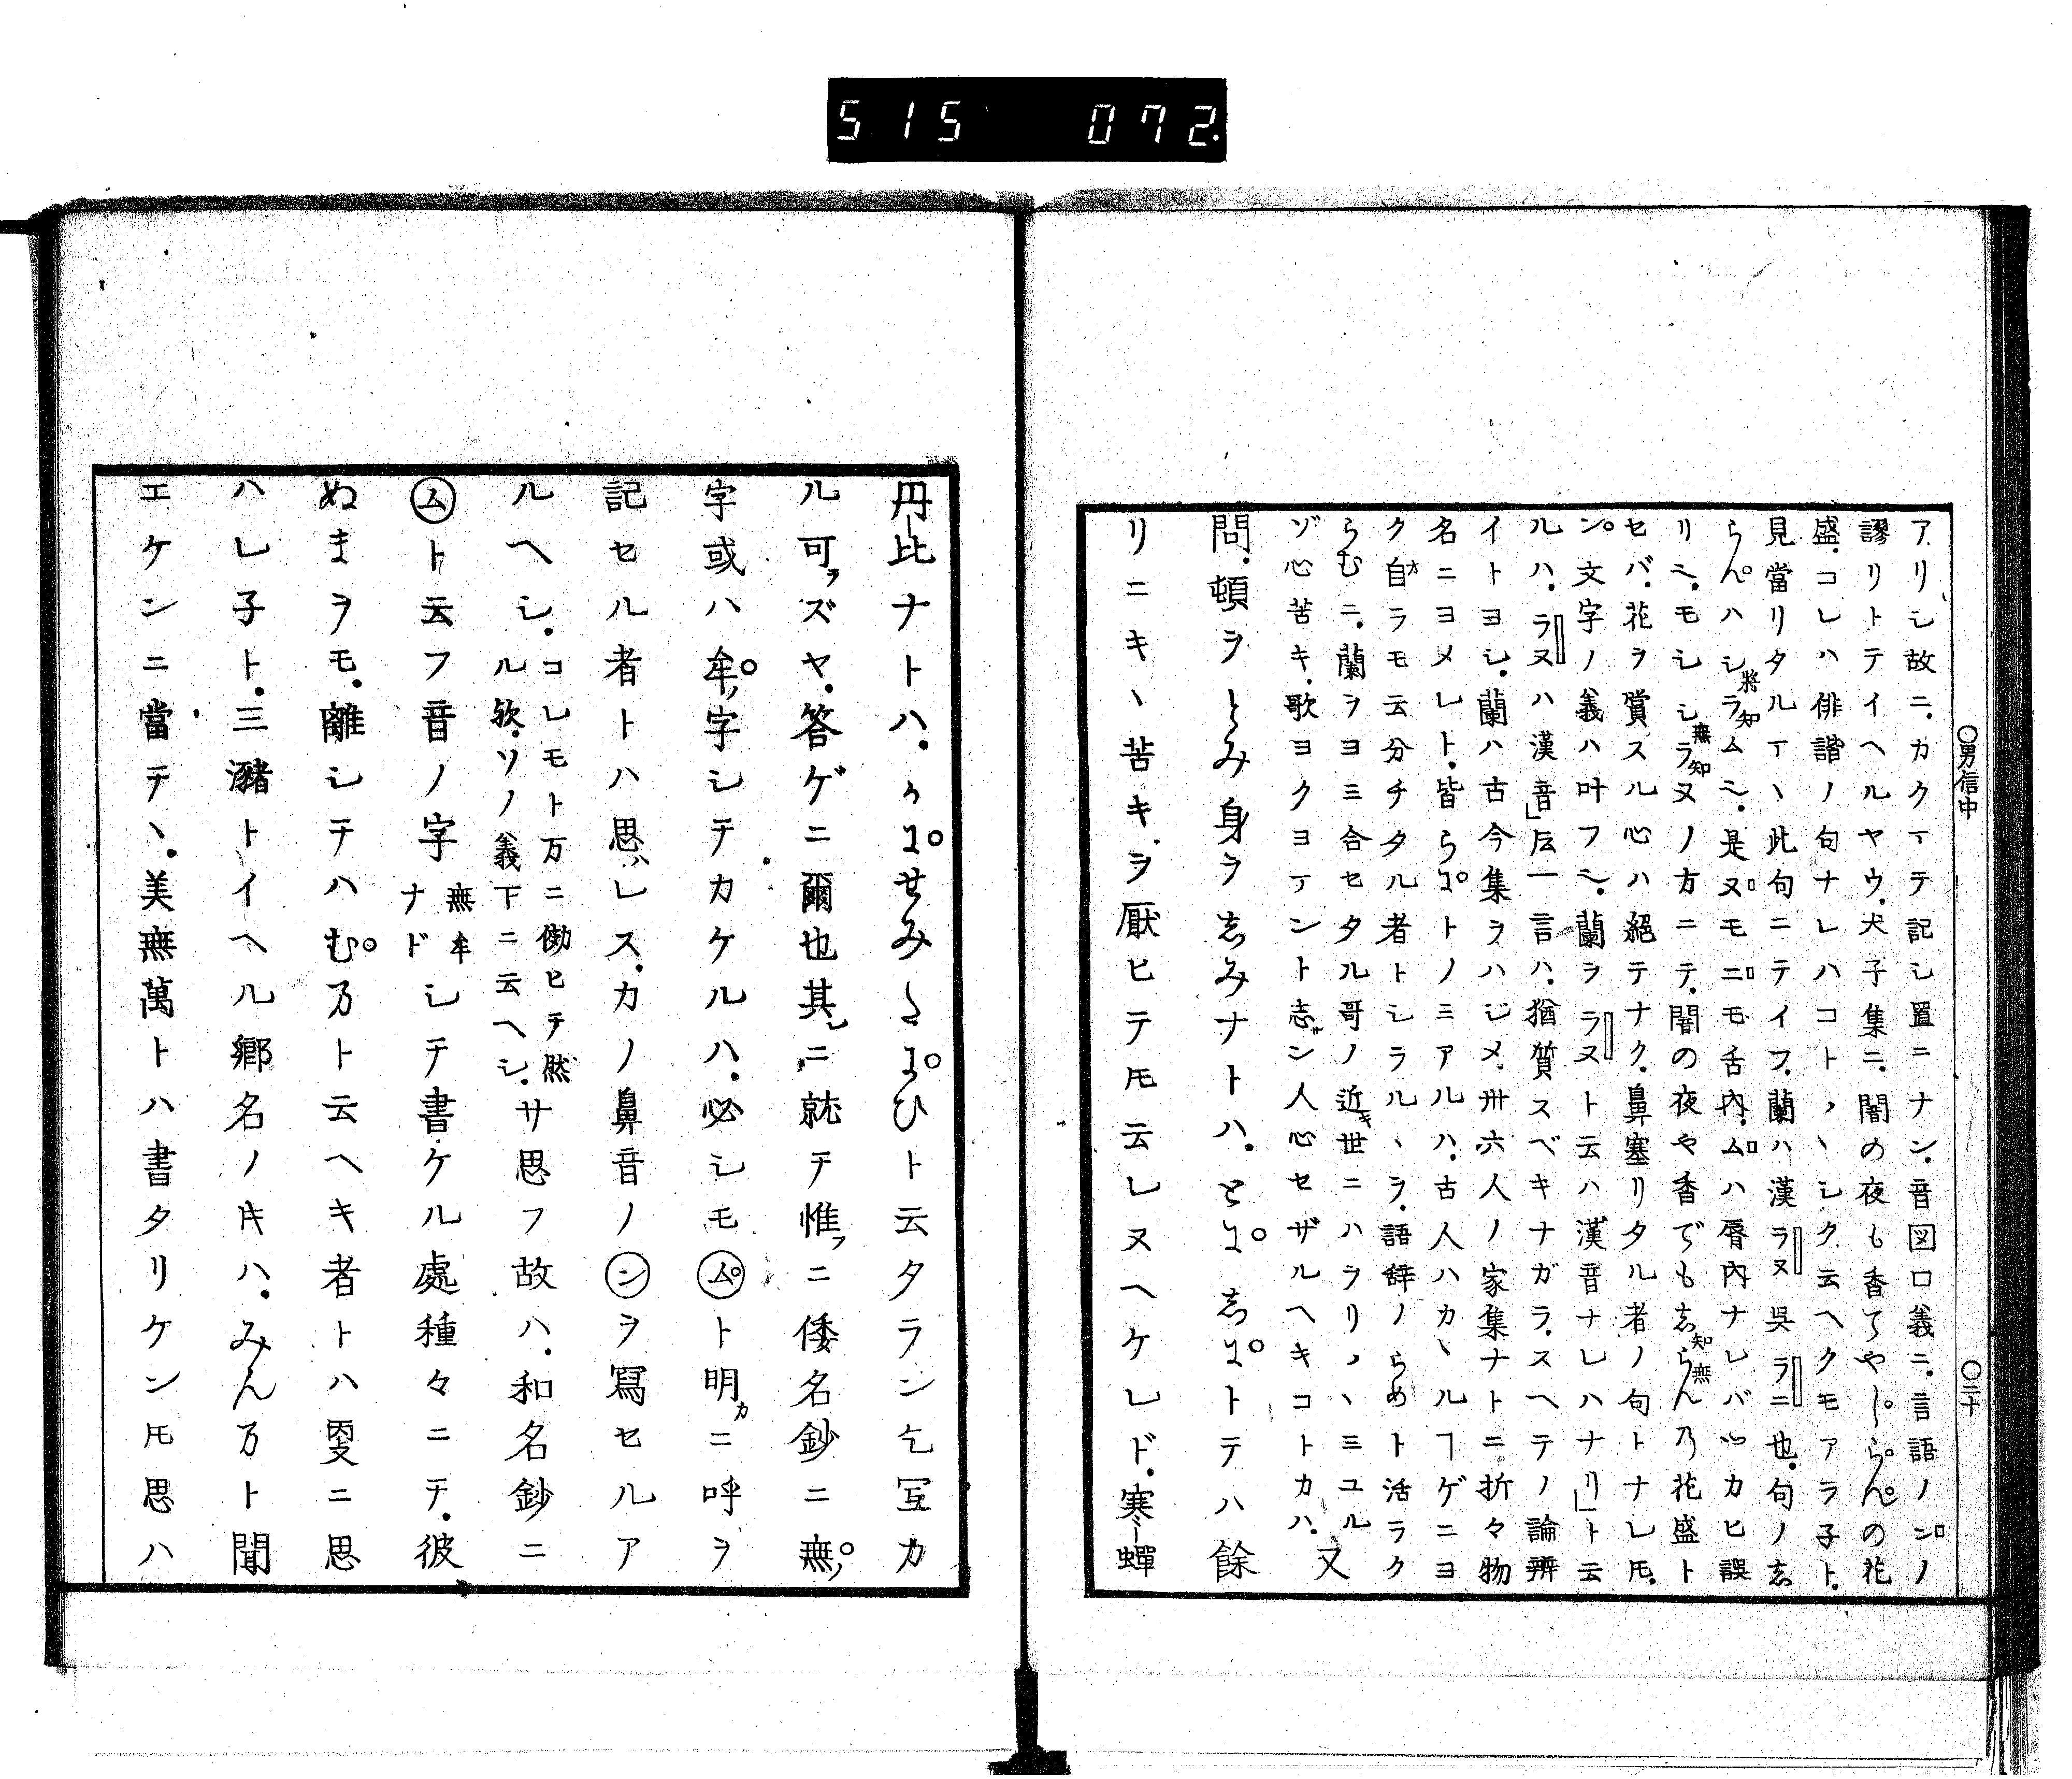 515 072.
〇男信中 〇二十
アリシ故ニ.カクテ記シ置ニナン.音図口義ニ.言語ノンノ
謬リトテイヘルヤウ.犬子集ニ.闇の夜も香てやしらんの花
盛.コレハ俳諧ノ句ナレハコトヽシク云ヘクモアラ子ト.
見當リタルヽ此句ニテイフ.蘭ハ漢ラヌ呉ラニ也.句ノ志
らんハシラムニ.是ヌモニモ舌内.ムハ脣内ナレバツカヒ誤
リニ.モシシラヌノ方ニテ.闇の夜や香でも志らん乃花盛ト
セバ.花ヲ賞スル心ハ絕テナク.鼻塞リタル者ノ句トナレ𪜈.
ン.文字ノ義ハ叶フニ.蘭ヲラヌト云ハ漢音ナレハナリ」ト云
ルハ.ラヌハ漢音」反一言ハ.猶質スベキナガラ.スヘテノ論辨
イトヨシ.蘭ハ古今集ヲハジメ.卅六人ノ家集ナトニ.折々物
名ニヨメレト.皆らにトノミアルハ.古人ハカヽルヿゲニヨ
ク自ラモ云分チタル者トシラルヽヲ.語辭ノらめト活ラク
らむニ.蘭ヲヨミ合セタル哥ノ近世ニハヲリヽミユル
ゾ心苦キ.歌ヨクヨテント志ン人心セザルヘキコトカハ. 又
問.頓ヲとみ身ヲ志みナトハ.とに志にトテハ餘
リニキヽ苦キ.ヲ厭ヒテ𪜈云レヌヘケレド.寒蟬
丹比ナトハ.かにせみたにひト云タランヒ宣カ
ル可ラズヤ.答ゲニ爾也其ニ就テ惟フニ倭名鈔ニ無ノ
字或ハ牟ノ字シテカケルハ.必シモムト明カニ呼ヲ
記セル者トハ思ハレス.カノ鼻音ノンヲ寫セルア
ルヘシ.コレモト万ニ傚ヒテ然
ル欤.ソノ義下ニ云ヘシ.サ思フ故ハ.和名鈔ニ
ムト云フ音ノ字無牟
ナドシテ書ケル處種々ニテ.彼
ぬまヲモ.離シテハむ万ト云ヘキ者トハ更ニ思
ハレ子ト.三瀦トイヘル郷名ノキハ.みん万ト聞
エケンニ當テヽ.美無萬トハ書タリケン𪜈思ハ